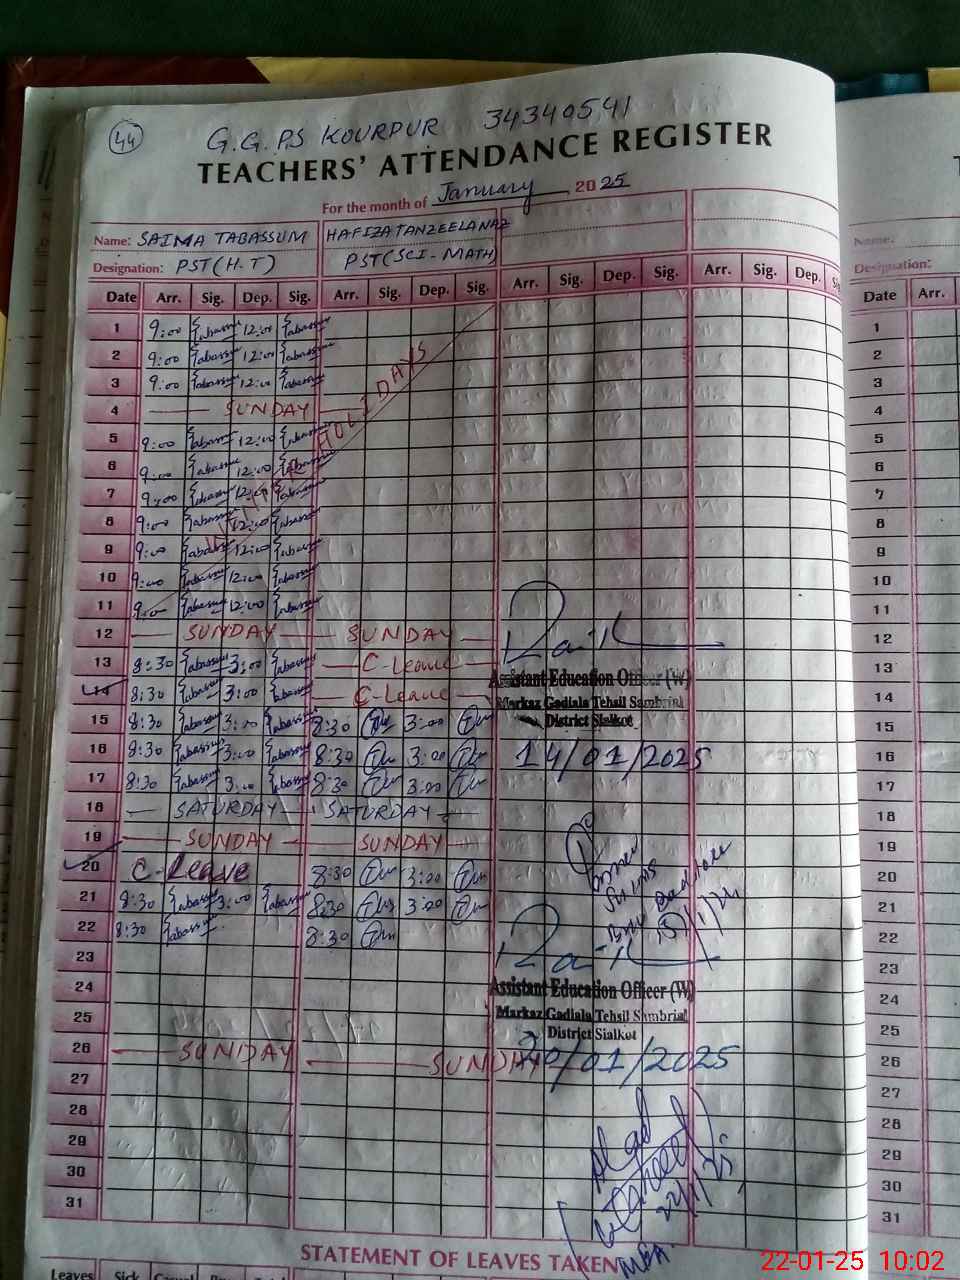 44 G.G.P.S KOURPUR 34340541
TEACHERS' ATTENDANCE REGISTER
For the month of January, 2025
Name: SAIMA TABASSUM HAFIZA TANZEELA NAZ
Designation: PST (H.T) PST (SCI-MATH)
Date Arr. Sig. Dep. Sig. Arr. Sig. Dep. Sig. Arr. Sig. Dep. Sig. Arr. Sig. Dep.
1 9:00 Tabassum 12:00 Tabassum
2 9:00 Tabassum 12:00 Tabassum
3 9:00 Tabassum 12:00 Tabassum
4 SUNDAY
5 9:00 Tabassum 12:00 Tabassum
6 9:00 Tabassum 12:00 Tabassum
7 9:00 Tabassum 12:00 Tabassum
8 9:00 Tabassum 12:00 Tabassum
9 9:00 Tabassum 12:00 Tabassum
10 9:00 Tabassum 12:00 Tabassum
11 9:00 Tabassum 12:00 Tabassum
HOLIDAYS
12 SUNDAY SUNDAY
13 8:30 Tabassum 3:00 Tabassum C-Leave
14 8:30 Tabassum 3:00 Tabassum C-Leave
15 8:30 Tabassum 3:00 Tabassum 8:30 3:00
16 8:30 Tabassum 3:00 Tabassum 8:30 3:00
17 8:30 Tabassum 3:00 Tabassum 8:30 3:00
18 SATURDAY SATURDAY
19 SUNDAY SUNDAY
20 C-Leave 8:30 3:00
21 8:30 Tabassum 3:00 Tabassum 8:30 3:00
22 8:30 Tabassum 8:30
23
24
25
26 SUNDAY SUNDAY
27
28
29
30
31
Assistant Education Officer (W)
Markaz Gadiala Tehsil Sambrial
District Sialkot
14/01/2025
Assistant Education Officer (W)
Markaz Gadiala Tehsil Sambrial
District Sialkot
20/01/2025
22/1/25
MEA.
STATEMENT OF LEAVES TAKEN
Leaves Sick Casual
Name:
Designation:
Date Arr.
1
2
3
4
5
6
7
8
9
10
11
12
13
14
15
16
17
18
19
20
21
22
23
24
25
26
27
28
29
30
31
22-01-25 10:02